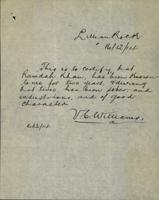 Lillian Rock
16/12/04
This is to certify that
Ramdah Khan, has been Known
to me for two years, & during
that time, has been sober, and
industrious, and of good
character
V C Williams.